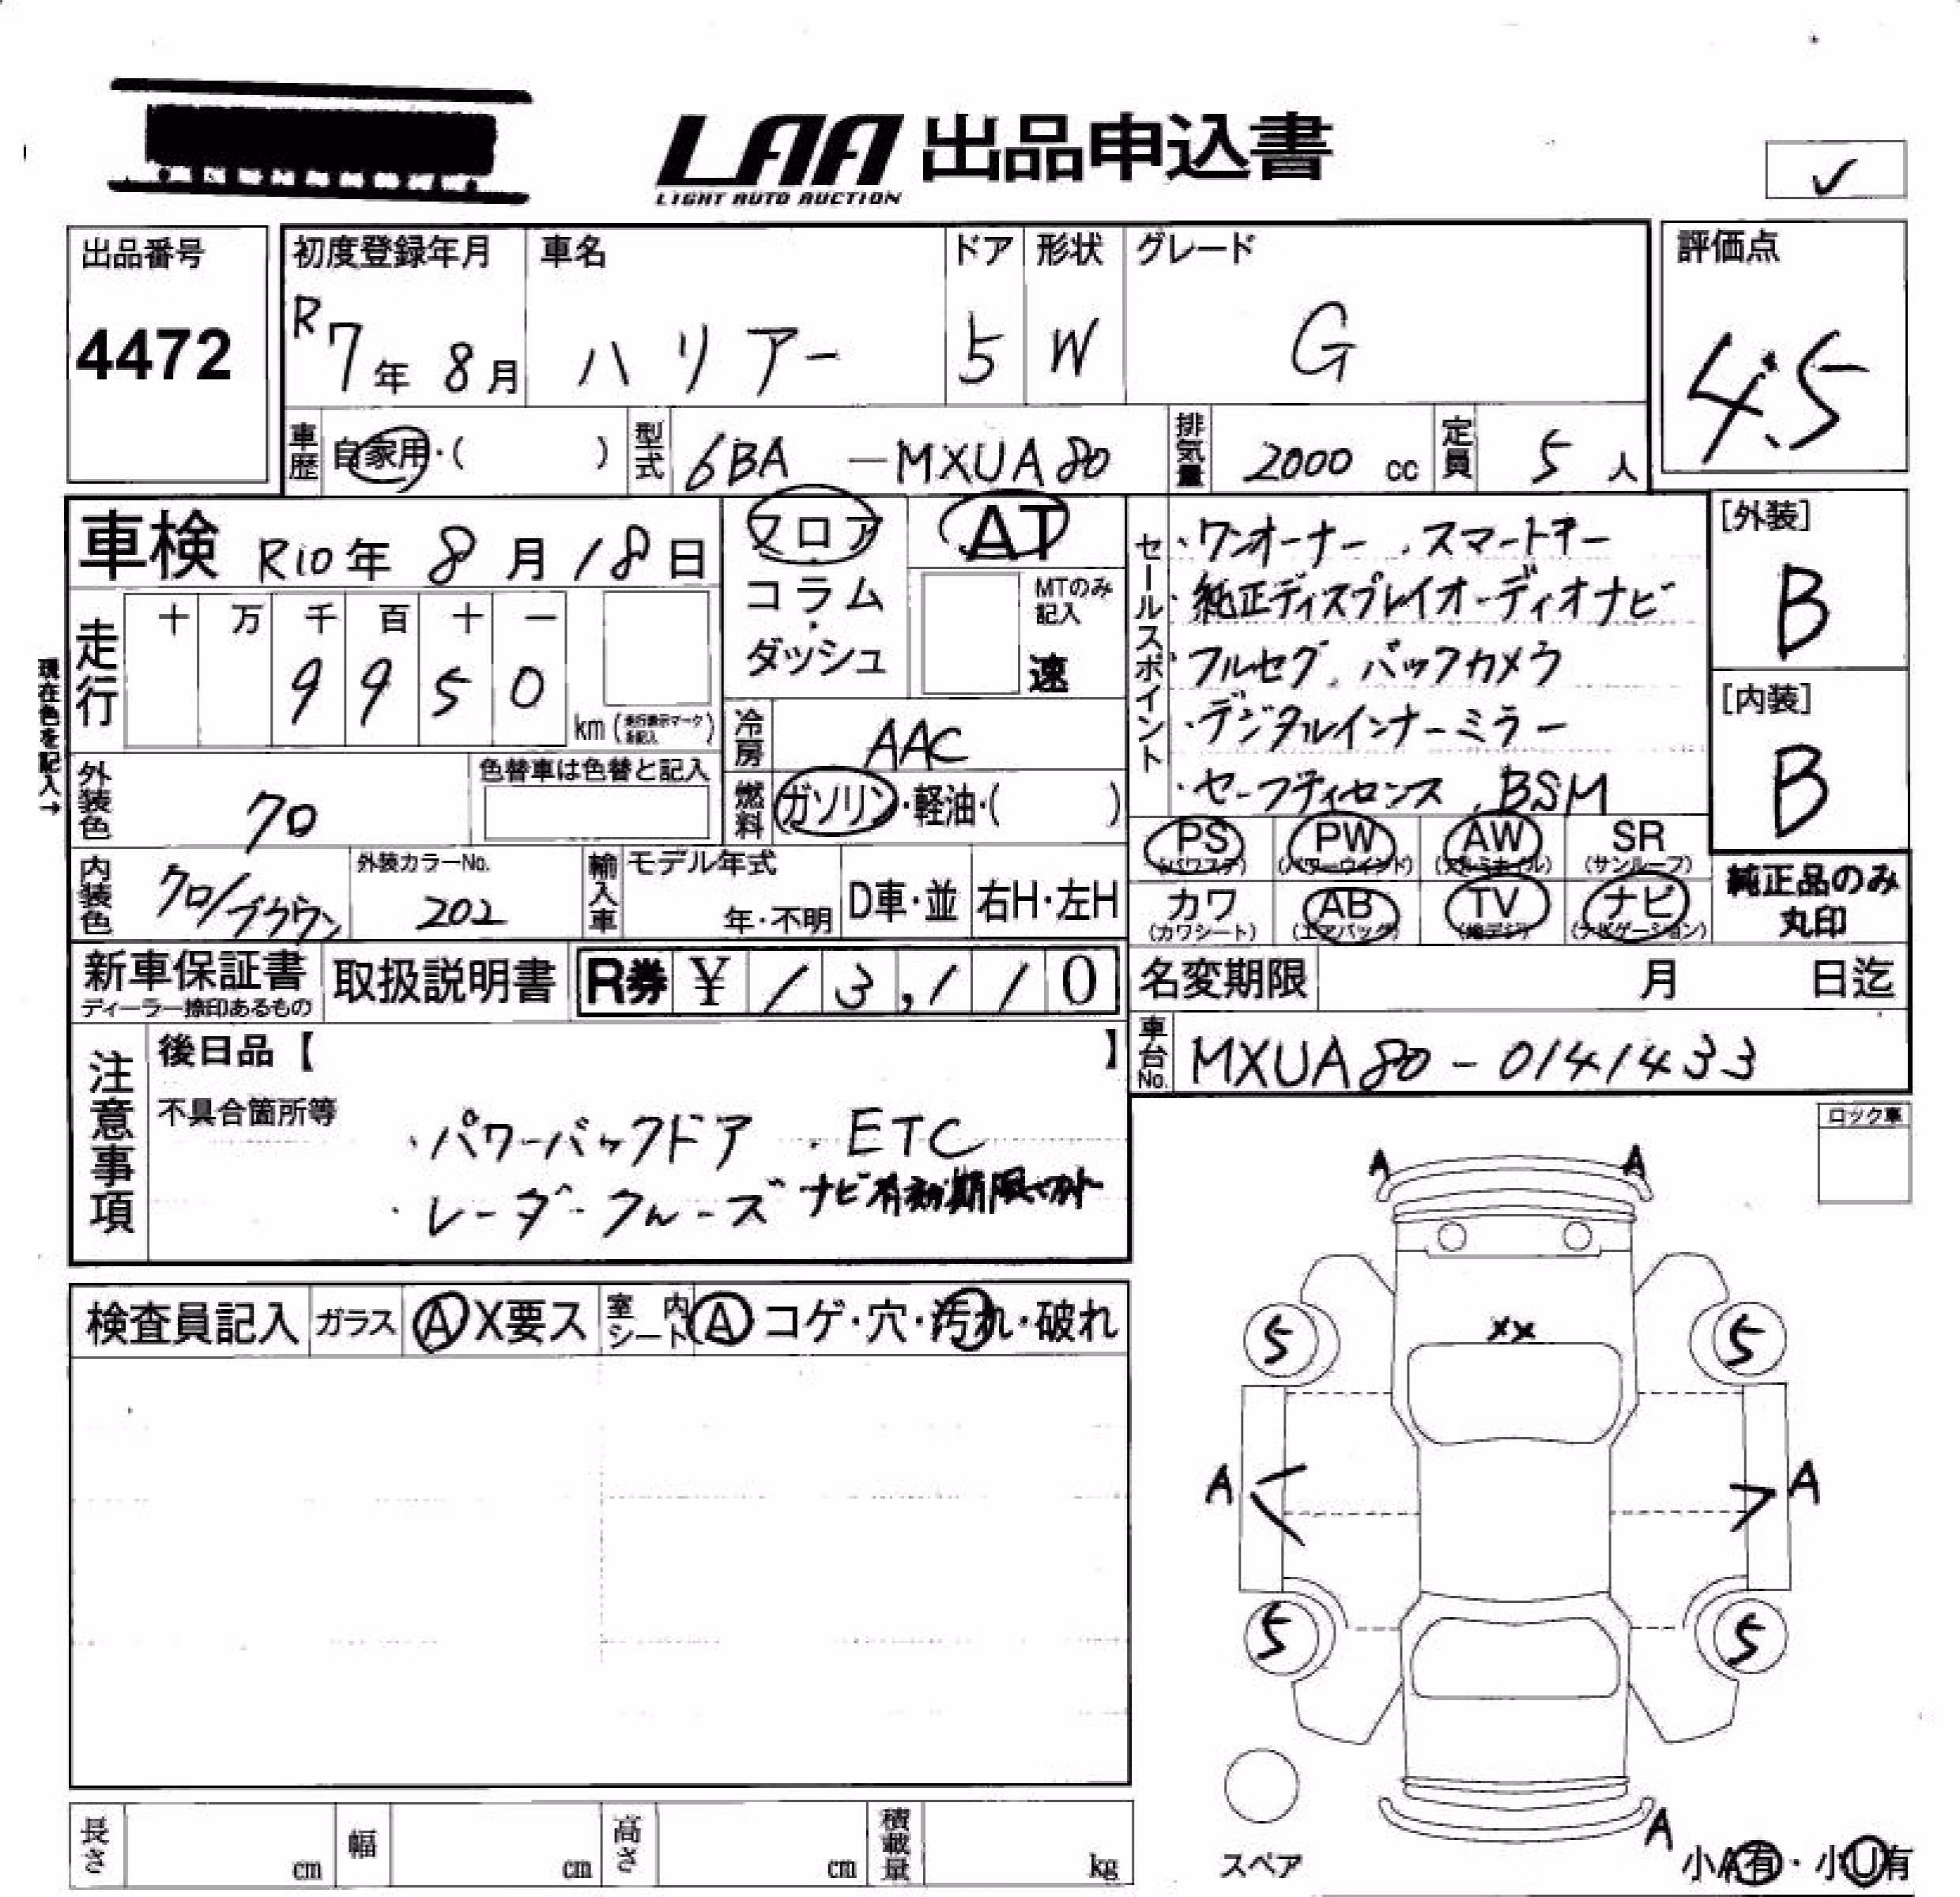 LAA 出品申込書
LIGHT AUTO AUCTION
✓
出品番号
4472
初度登録年月
R7年 8月
車名
ハリアー
ドア
5
形状
W
グレード
G
評価点
4.5
車歴 自家用・( )
型式 6BA -MXUA80
排気量 2000 cc
定員 5 人
車検 R10年 8月 18日
走行 十 万 千 百 十 一
9 9 5 0
km (走行表示マークを記入)
現在色を記入→
外装色 クロ
色替車は色替と記入
内装色 クロ/ブラウン
外装カラーNo.
202
輸入車
モデル年式
年・不明
D車・並
右H・左H
フロア・コラム・ダッシュ
AT
MTのみ記入
速
冷房 AAC
燃料 ガソリン・軽油・( )
セールスポイント
・ワンオーナー ・スマートキー
・純正ディスプレイオーディオナビ
・フルセグ、バックカメラ
・デジタルインナーミラー
・セーフティセンス、BSM
[外装]
B
[内装]
B
PS (パワステ)
PW (パワーウインド)
AW (アルミホイル)
SR (サンルーフ)
カワ (カワシート)
AB (エアバック)
TV (地デジ)
ナビ (ナビゲーション)
純正品のみ
丸印
新車保証書
ディーラー捺印あるもの
取扱説明書
R券 ¥ 13,110
名変期限 月 日迄
車台No. MXUA80-0141433
注意事項
後日品【 】
不具合箇所等
・パワーバックドア ・ETC
・レーダークルーズ ナビ有効期限切れ
ロック車
検査員記入
ガラス A X要ス
室内シート A コゲ・穴・汚れ・破れ
A A
XX
5 5
A A
5 5
A
スペア
小A有・小U有
長さ cm
幅 cm
高さ cm
積載量 kg